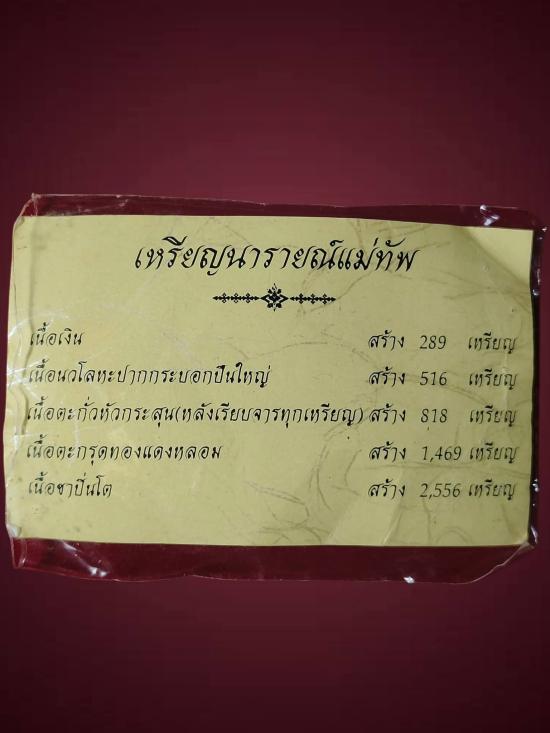 เหรียญนารายณ์แม่ทัพ
เนื้อเงิน สร้าง 289 เหรียญ
เนื้อนวโลหะปากกระบอกปืนใหญ่ สร้าง 516 เหรียญ
เนื้อตะกั่วหัวกระสุน(หลังเรียบจารทุกเหรียญ) สร้าง 818 เหรียญ
เนื้อตะกรุดทองแดงหลอม สร้าง 1,469 เหรียญ
เนื้อซาปิ่นโต สร้าง 2,556 เหรียญ